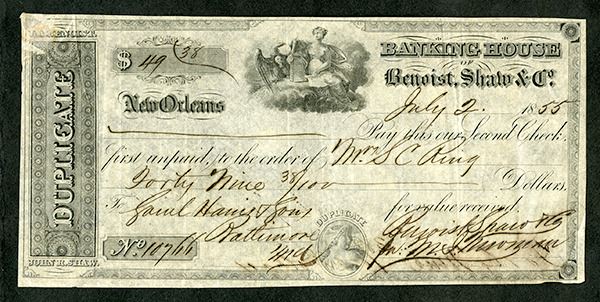 BANKING HOUSE
OF
Benoist, Shaw & Co.
$ 49 38
New Orleans July 2. 1855
Pay this our Second Check,
first unpaid, to the order of Mrs S C King
Forty Nine 38/100 Dollars.
To Saml Harris & Sons for value received,
Baltimore Benoist Shaw & Co
Md
No. 10766
DUPLICATE
DUPLICATE
JOHN R. SHAW.